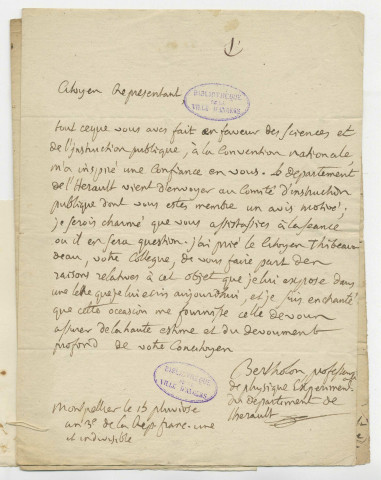 1
Citoyen Representant
BIBLIOTHÈQUE
DE LA
VILLE D'AMIENS
tout ceque vous aves fait en faveur des sciences et
de l'instruction publique, à la Convention nationale,
m'a inspiré une confiance en vous. le Departement
de l'Herault vient d'envoyer au Comité d'instruction
publique dont vous estes membre un avis motivé.
je serois charmé que vous assistassies à la seance
ou il en sera question. j'ai prié le Citoyen Thibeau-
deau, votre Collegue, de vous faire part des
raisons relatives à cet objet que je lui expose dans
une lettre que je lui ecris aujourdhui, et je suis enchanté
que cette occasion me fournisse celle de vous
assurer de la haute estime et du devoument
profond de votre Concitoyen
Bertholon professeur
de physique Experiment.
du Departement de
l'herault
BIBLIOTHÈQUE
DE LA
VILLE D'AMIENS
Montpellier le 15 pluviose
an 3e de la Rep. franc. une
et indivisible